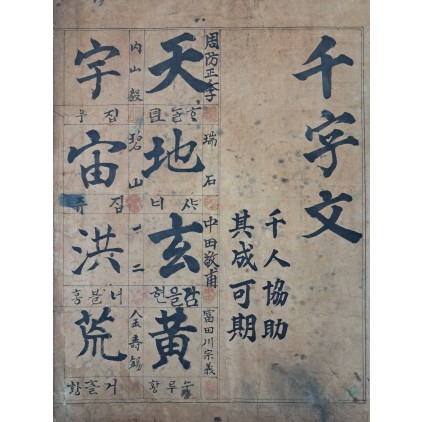 千字文
千人協助
其成可期
周防正季
天
하늘텬
瑞石
地
ᄯᅡ디
中田敬甫
玄
감을현
富田川宗義
黄
누루황
内山毅
宇
집우
碧山
宙
집쥬
一二
洪
너블홍
金壽錫
荒
거츨황